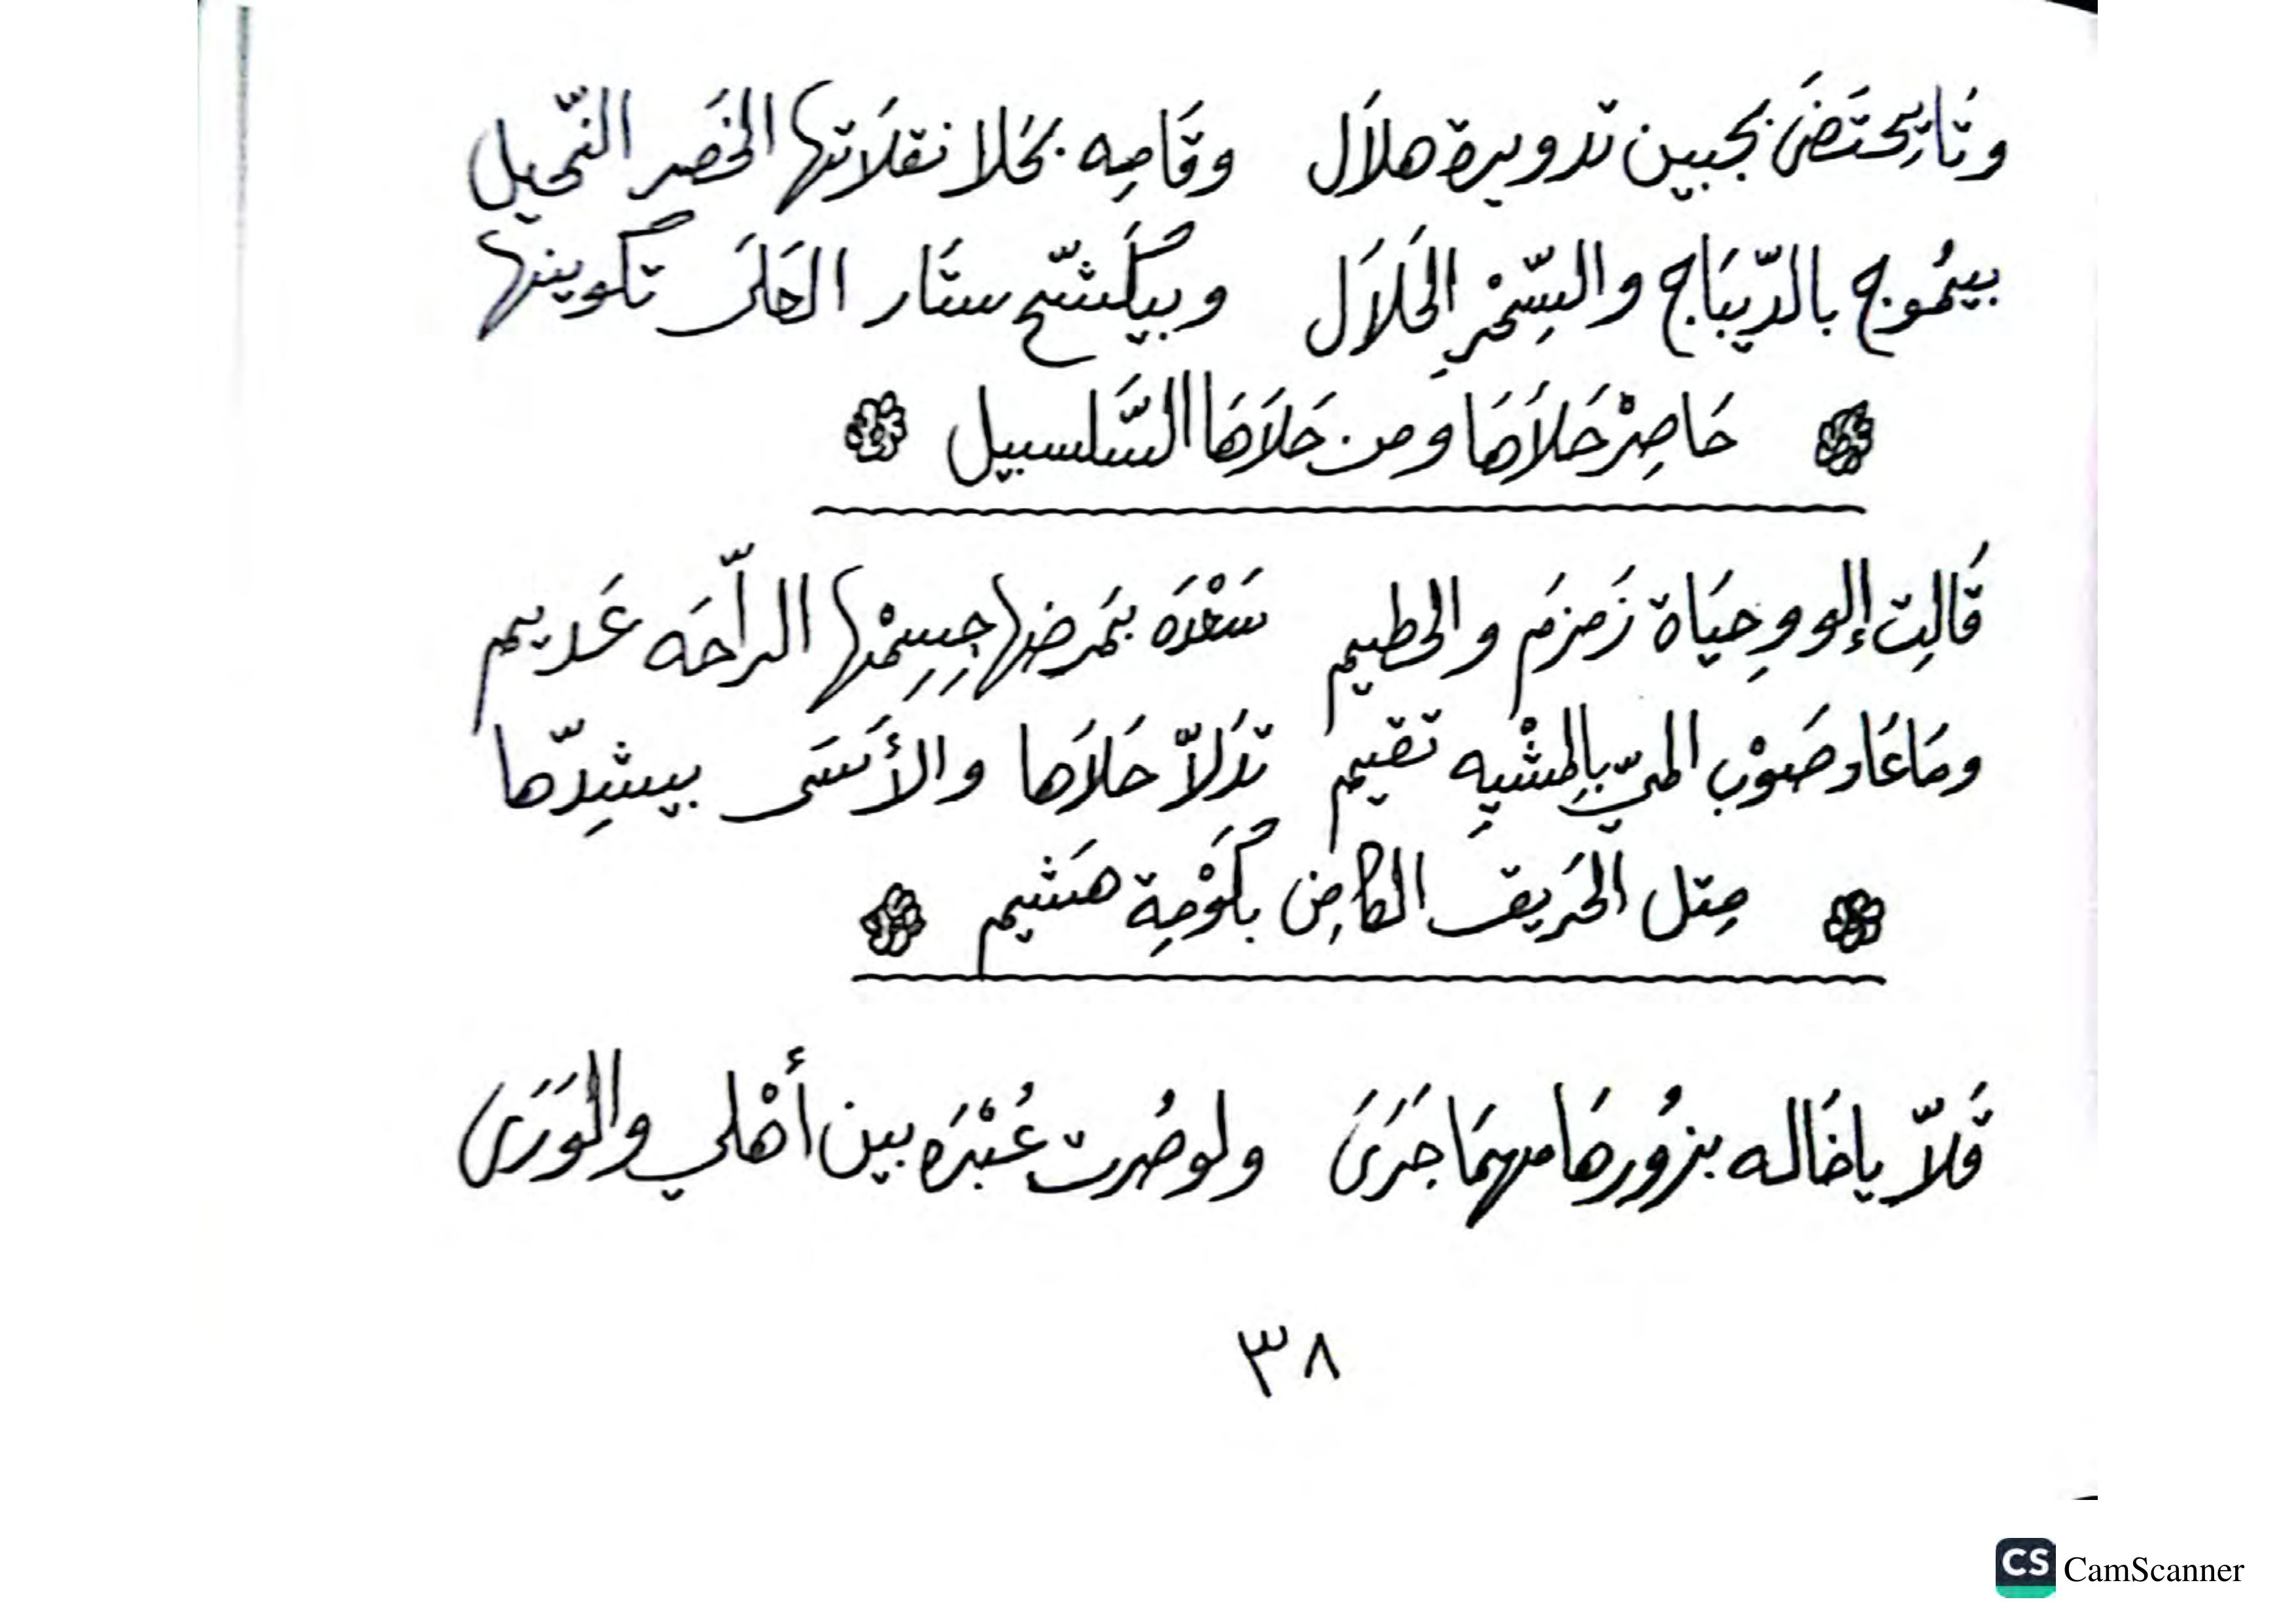 وتَا يِحتَضَ بجبين تدويرة هلاَل وقَامِه بحَلا نقلاَتها الخَصر النّحيل
بيمُوج بالدّيبَاج والسِّحْرِ الحَلاَل وبيكَشّح ستَار الحَلَى تكوينها
حَاصِرْ حَلاَهَا ومن حَلاَهَا السَّلسبيل
قَالِت إلو وحِيَاة زَمزَم والحطيم سَعْدَه بمَرضها جِسِمْها الرّاحَه عَديم
ومَاعَاد صَوْب الميّ بالِمشْيِه تقيم تدَلاّ حَلاَها والأسَى بيشِدّها
مِتل الحَريق الكامِن بكَوْمِة هَشيم
قَلاّ ياخَاله بزُورهَا مهمَا جَرَى ولو صُرت عُبْرَه بين أهْلي والوَرَى
٣٨
CS CamScanner